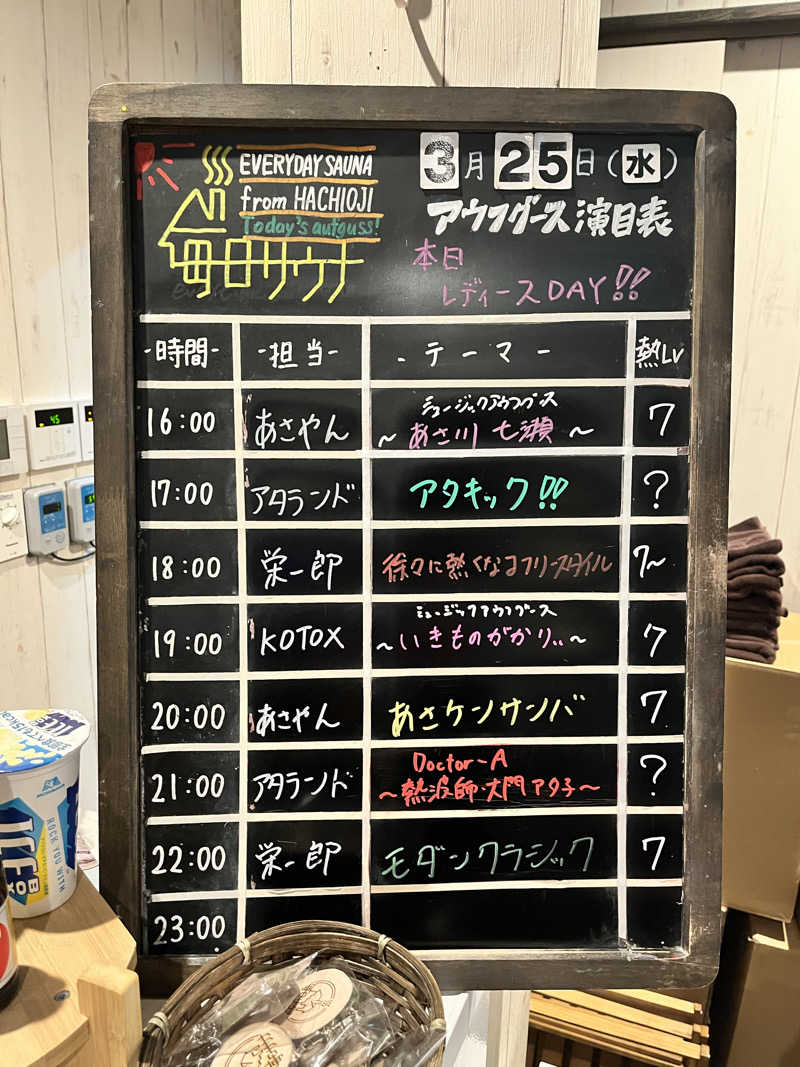 EVERYDAY SAUNA
from HACHIOJI
Today's aufguss!
毎日サウナ
3月25日(水)
アウフグース演目表
本日
レディースDAY!!
-時間- -担当- -テーマー 熱LV
16:00 あさやん ミュージックアウフグース 7
~あさ川 七瀬~
17:00 アタランド アタキック!! ?
18:00 栄一郎 徐々に熱くなるフリースタイル 7~
19:00 KOTOX ミュージックアウフグース 7
~いきものがかり..~
20:00 あさやん あさケンサンバ 7
21:00 アタランド Doctor-A ?
~熱波師・大門アタ子~
22:00 栄一郎 モダンクラシック 7
23:00
45
ICE
ROCK YOU WITH